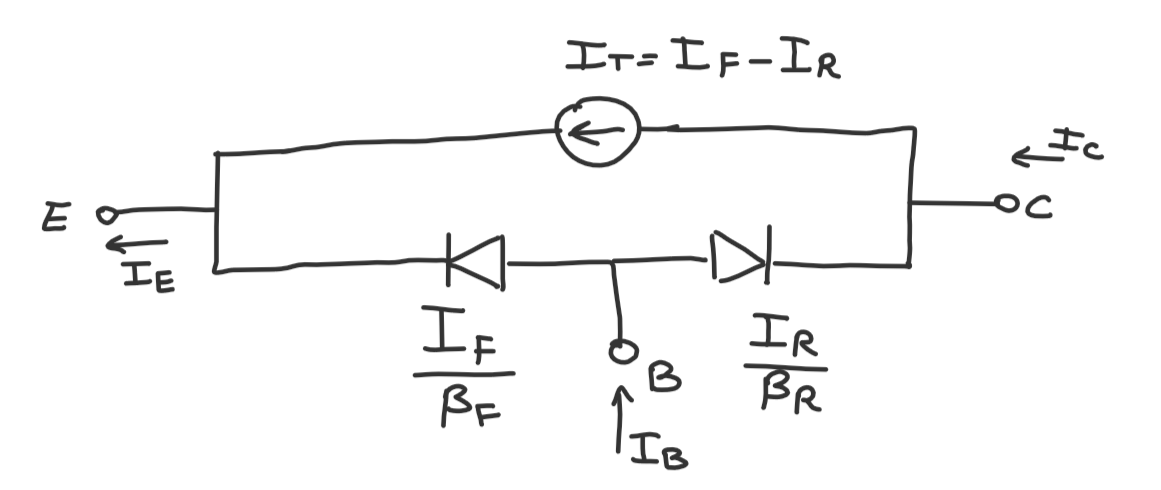 I_T = I_F - I_R
I_C
E
C
I_E
I_F
β_F
B
I_R
β_R
I_B